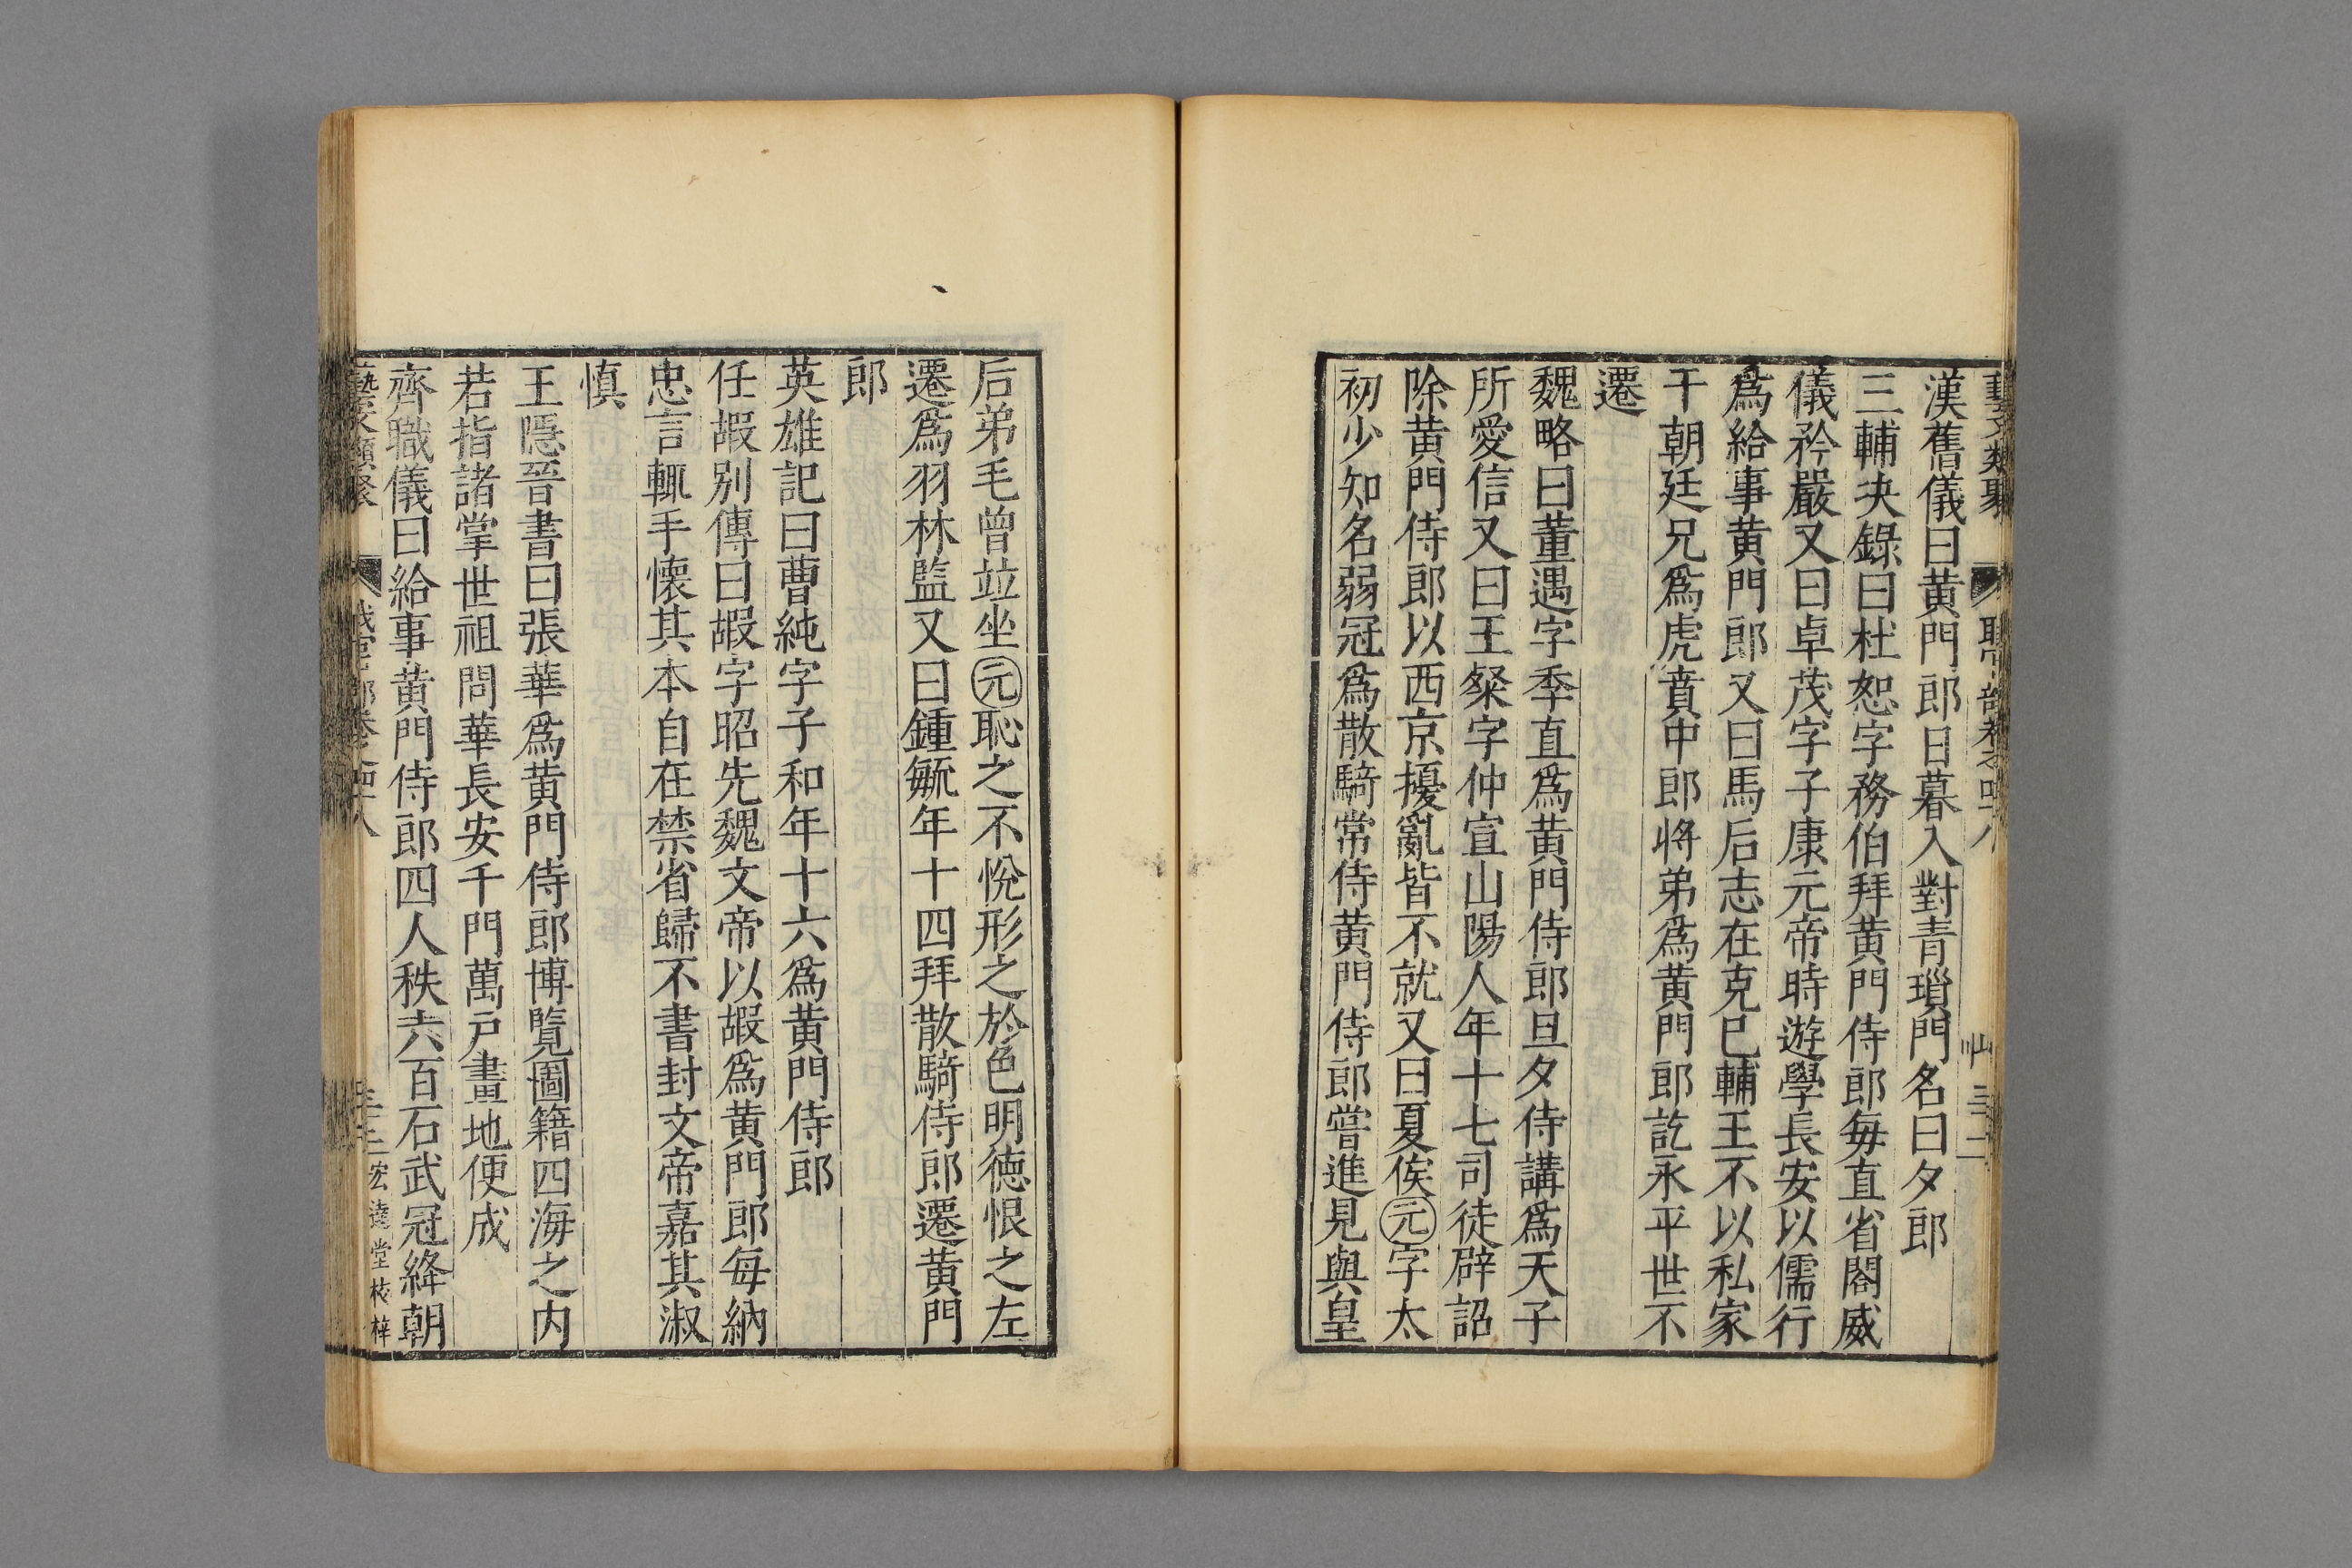 漢舊儀曰黄門郎日暮入對青瑣門名曰夕郎
三輔决錄曰杜恕字務伯拜黄門侍郎每直省閣威
儀矜嚴又曰卓茂字子康元帝時遊學長安以儒行
爲給事黄門郎又曰馬后志在克巳輔王不以私家
干朝廷兄爲虎賁中郎將弟爲黄門郎訖永平世不
遷
魏略曰董遇字季直爲黄門侍郎旦夕侍講爲天子
所愛信又曰王粲字仲宣山陽人年十七司徒辟詔
除黄門侍郎以西京擾亂皆不就又曰夏侯元字太
初少知名弱冠爲散騎常侍黄門侍郎嘗進見與皇
后弟毛曾竝坐元恥之不悅形之於色明德恨之左
遷爲羽林監又曰鍾毓年十四拜散騎侍郎遷黄門
郎
英雄記曰曹純字子和年十六爲黄門侍郎
任嘏別傳曰嘏字昭先魏文帝以嘏爲黄門郎每納
忠言輒手懷其本自在禁省歸不書封文帝嘉其淑
慎
王隱晉書曰張華爲黄門侍郎博覽圖籍四海之内
若指諸掌世祖問華長安千門萬戸畫地便成
齊職儀曰給事黄門侍郎四人秩六百石武冠絳朝
宏達堂校梓